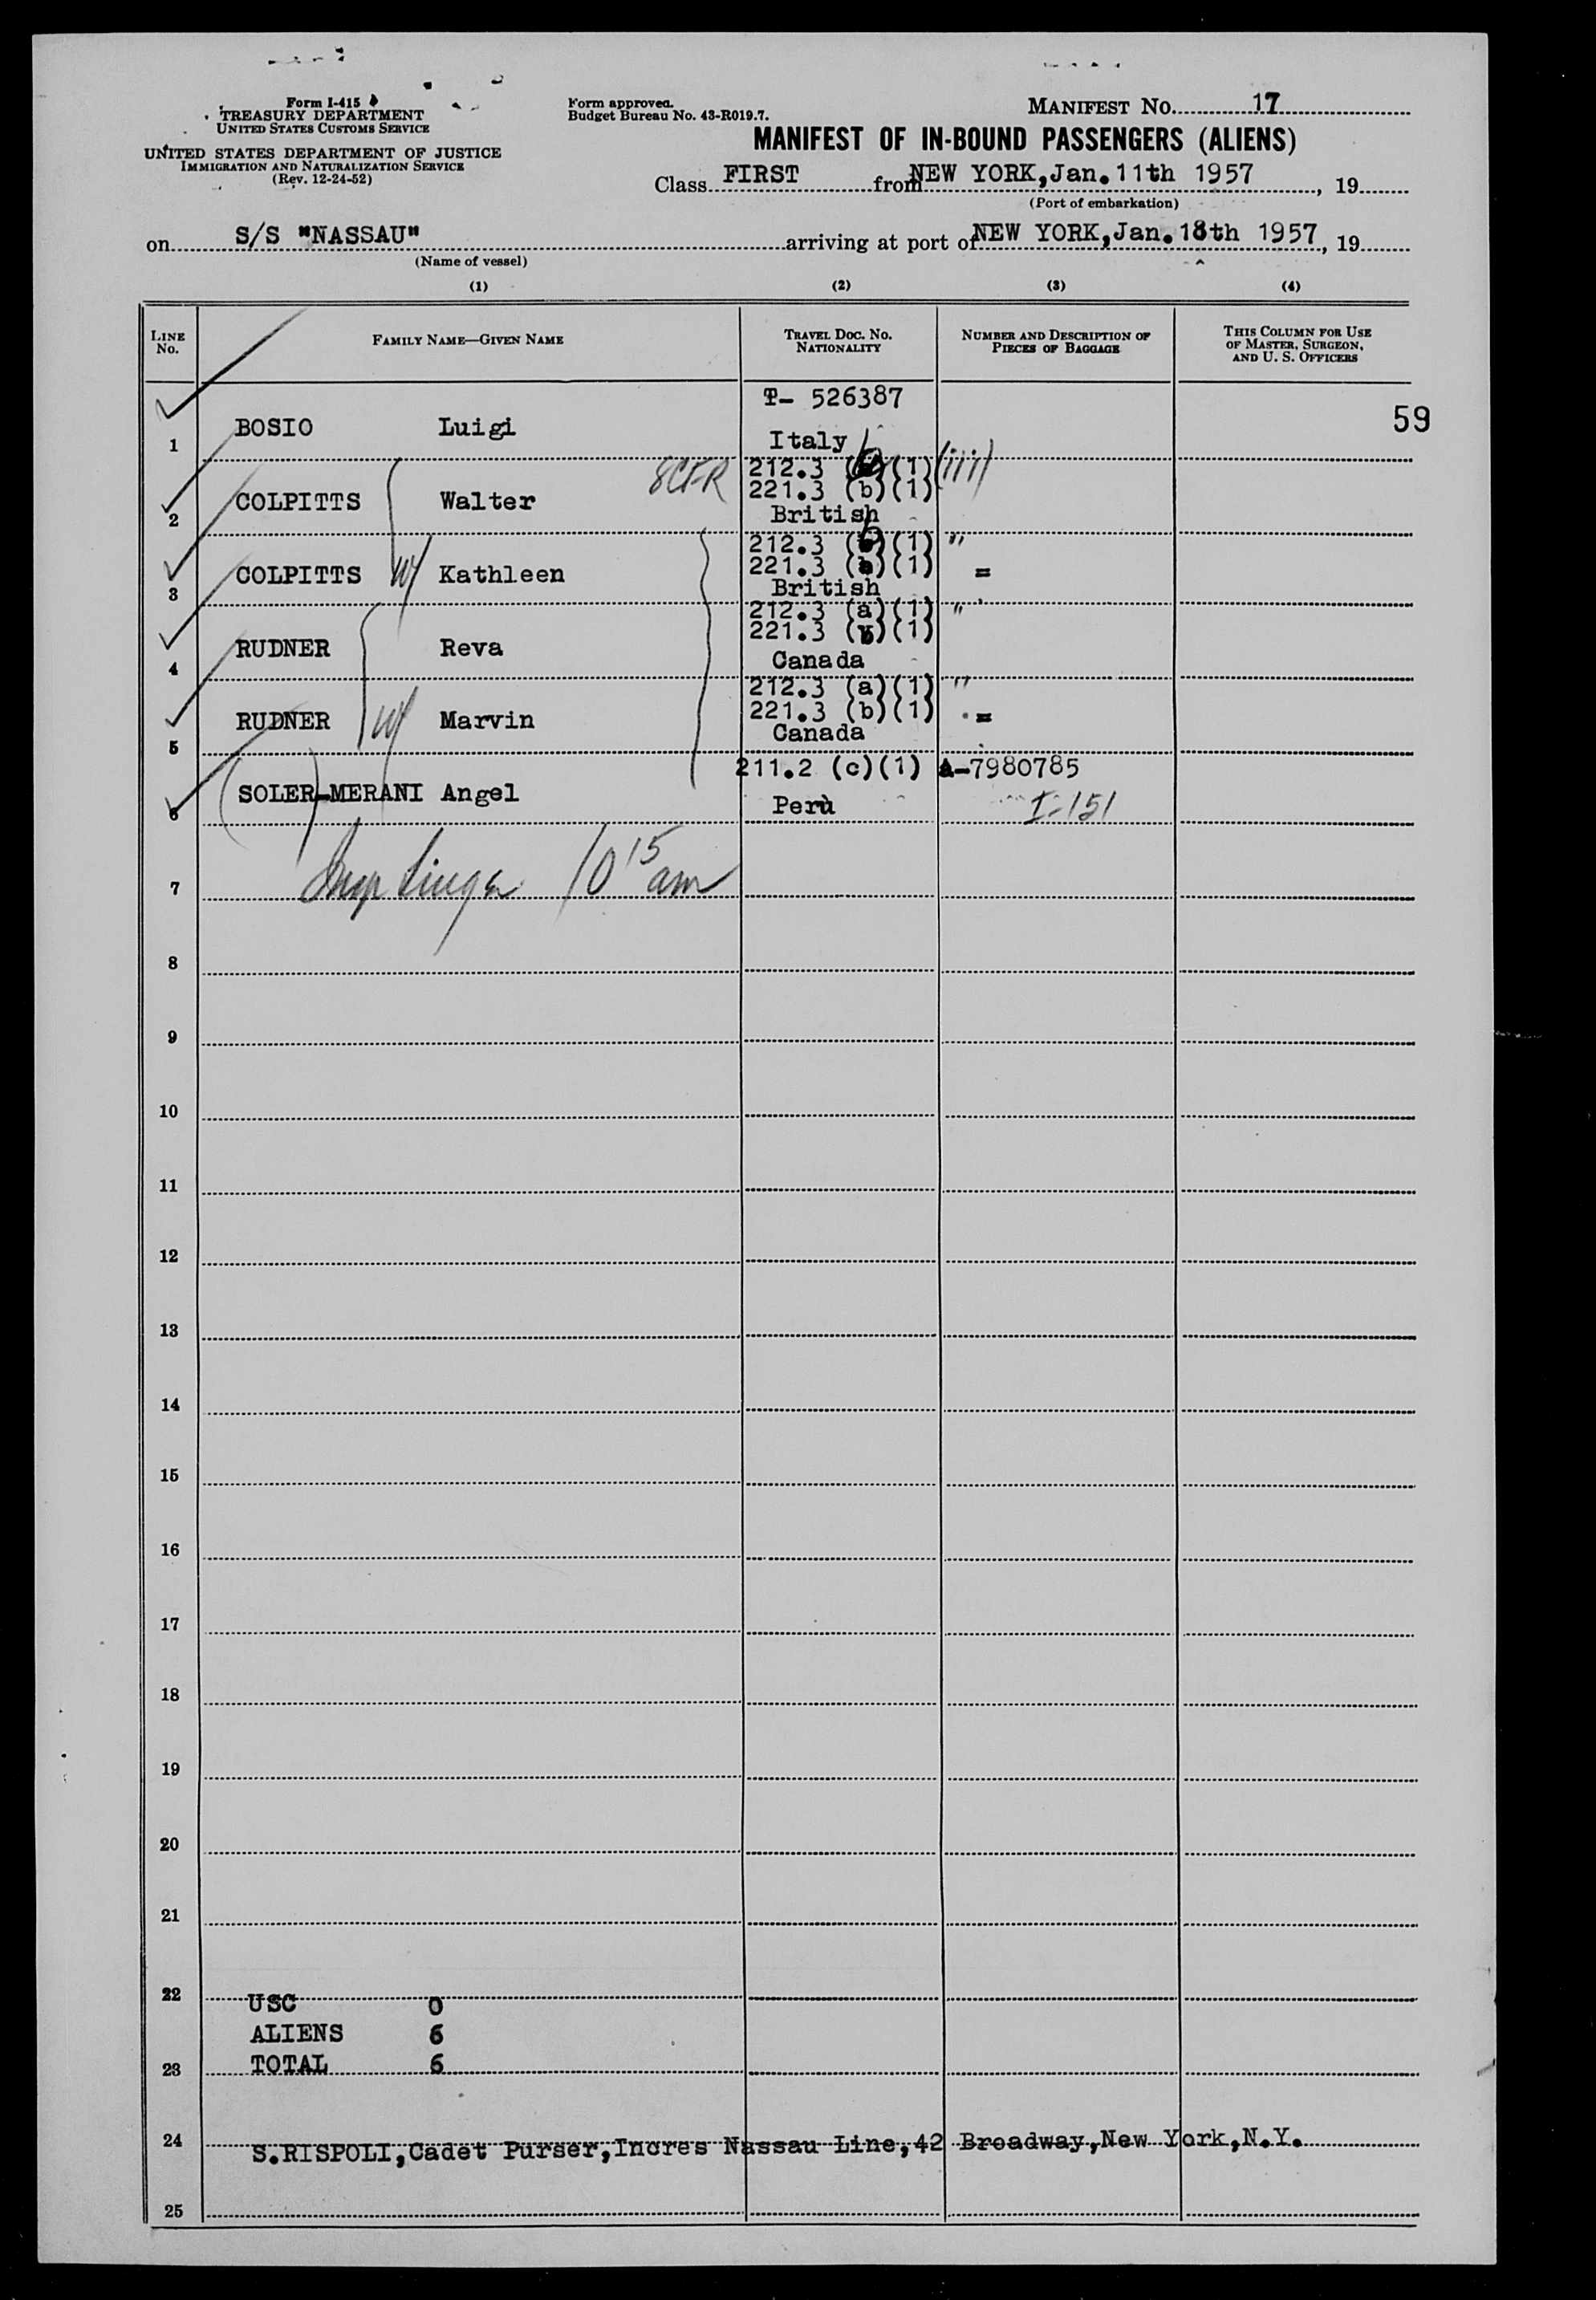 Form I-415
TREASURY DEPARTMENT
UNITED STATES CUSTOMS SERVICE
UNITED STATES DEPARTMENT OF JUSTICE
IMMIGRATION AND NATURALIZATION SERVICE
(Rev. 12-24-52)
Form approved.
Budget Bureau No. 43-R019.7.
MANIFEST NO. 17
MANIFEST OF IN-BOUND PASSENGERS (ALIENS)
Class FIRST from NEW YORK, Jan. 11th 1957, 19
(Port of embarkation)
on S/S "NASSAU" arriving at port of NEW YORK, Jan. 18th 1957, 19
(Name of vessel)
(1) (2) (3) (4)
LINE No. FAMILY NAME—GIVEN NAME TRAVEL DOC. NO. NATIONALITY NUMBER AND DESCRIPTION OF PIECES OF BAGGAGE THIS COLUMN FOR USE OF MASTER, SURGEON, AND U. S. OFFICERS
T- 526387
59
1 BOSIO Luigi Italy
8CFR 212.3 (b)(1)(iii)
221.3 (b)(1)
2 COLPITTS Walter British
212.3 (b)(1) "
221.3 (b)(1) =
3 COLPITTS w/ Kathleen British
212.3 (a)(1) "
221.3 (b)(1)
4 RUDNER Reva Canada
212.3 (a)(1) "
221.3 (b)(1) =
5 RUDNER w/ Marvin Canada
211.2 (c)(1) A-7980785
6 SOLER-MERANI Angel Perù I-151
7 10 15 am
8
9
10
11
12
13
14
15
16
17
18
19
20
21
22 USC 0
ALIENS 6
23 TOTAL 6
24 S.RISPOLI,Cadet Purser,Incres Nassau Line,42 Broadway,New York,N.Y.
25